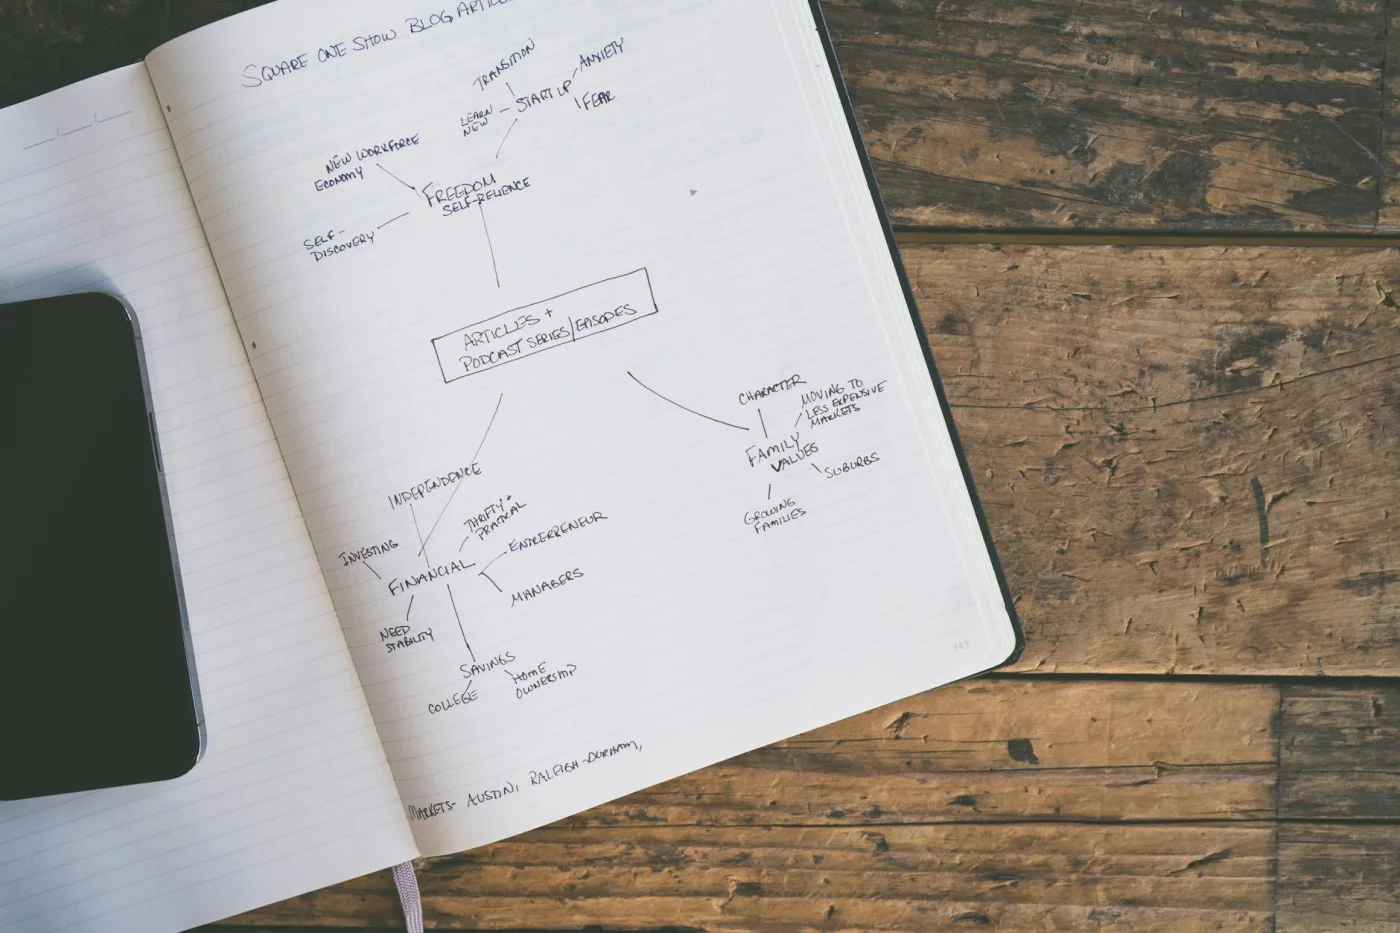 SQUARE ONE SHOW BLOG ARTICL
TRANSITION
ANXIETY
START UP
LEARN
NEW
FEAR
NEW WORKFORCE
ECONOMY
FREEDOM
SELF-RELIENCE
SELF-
DISCOVERY
ARTICLES +
PODCAST SERIES/EPISODES
CHARACTER
MOVING TO
LESS EXPENSIVE
MARKETS
FAMILY
VALUES
SUBURBS
GROWING
FAMILIES
INDEPENDENCE
THRIFTY +
PRATICAL
INVESTING
ENTRERPRENEUR
FINANCIAL
MANAGERS
NEED
STABILITY
SAVINGS
HOME
OWNERSHIP
COLLEGE
MARKETS- AUSTIN, RALEIGH-DURHAM,